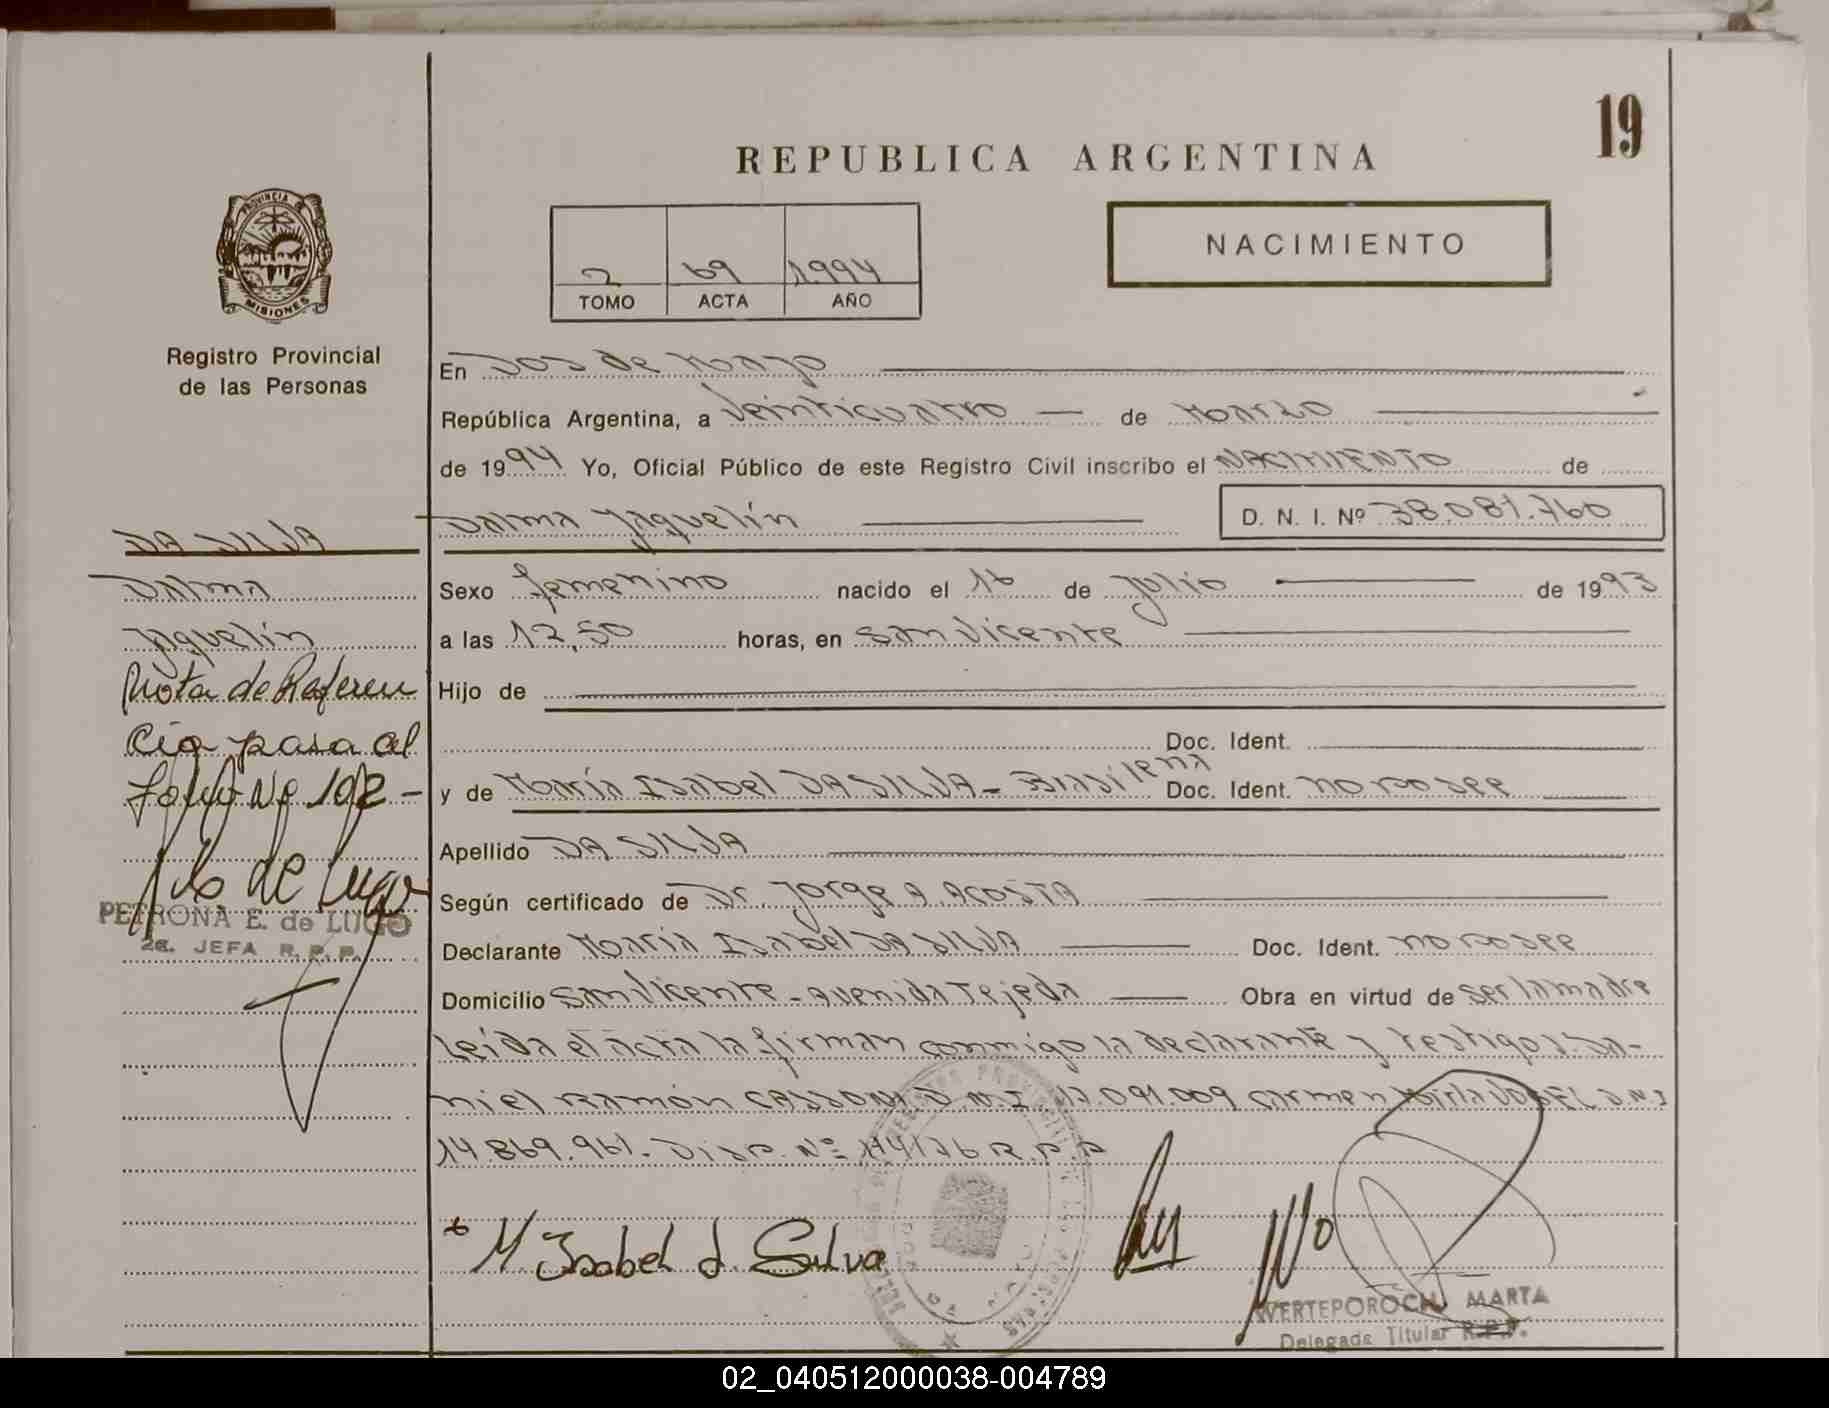 19
REPUBLICA ARGENTINA
PROVINCIA DE
MISIONES
NACIMIENTO
2 69 1994
TOMO ACTA AÑO
Registro Provincial
de las Personas
En DOS de Mayo
República Argentina, a veinticuatro de Marzo
de 1994 Yo, Oficial Público de este Registro Civil inscribo el NACIMIENTO de
Dalma Jaquelín D. N. I. Nº 38.081.760
DA SILVA
Dalma
Jaquelín
Nota de Referen
cia pasa al
folio Nº 102 -
de Lugo
PETRONA E. de LUGO
2a. JEFA R. P. P.
Sexo femenino nacido el 16 de Julio de 1993
a las 17,50 horas, en San Vicente
Hijo de
Doc. Ident.
y de María Isabel DA SILVA - Brasilena Doc. Ident. no posee
Apellido DA SILVA
Según certificado de Dr. Jorge A. ACOSTA
Declarante María Isabel DA SILVA Doc. Ident. no posee
Domicilio San Vicente - Avenida Tejeda Obra en virtud de ser la madre
Leída el acta la firman conmigo la declarante y testigos. Da-
niel Ramón D.N.I. 17.091.009 Carmen D.N.I
14.869.961. Disp. Nº R.P.P
M. Isabel d. Silva
WERTEPOROCH, MARTA
Delegada Titular R.P.P.
02_040512000038-004789